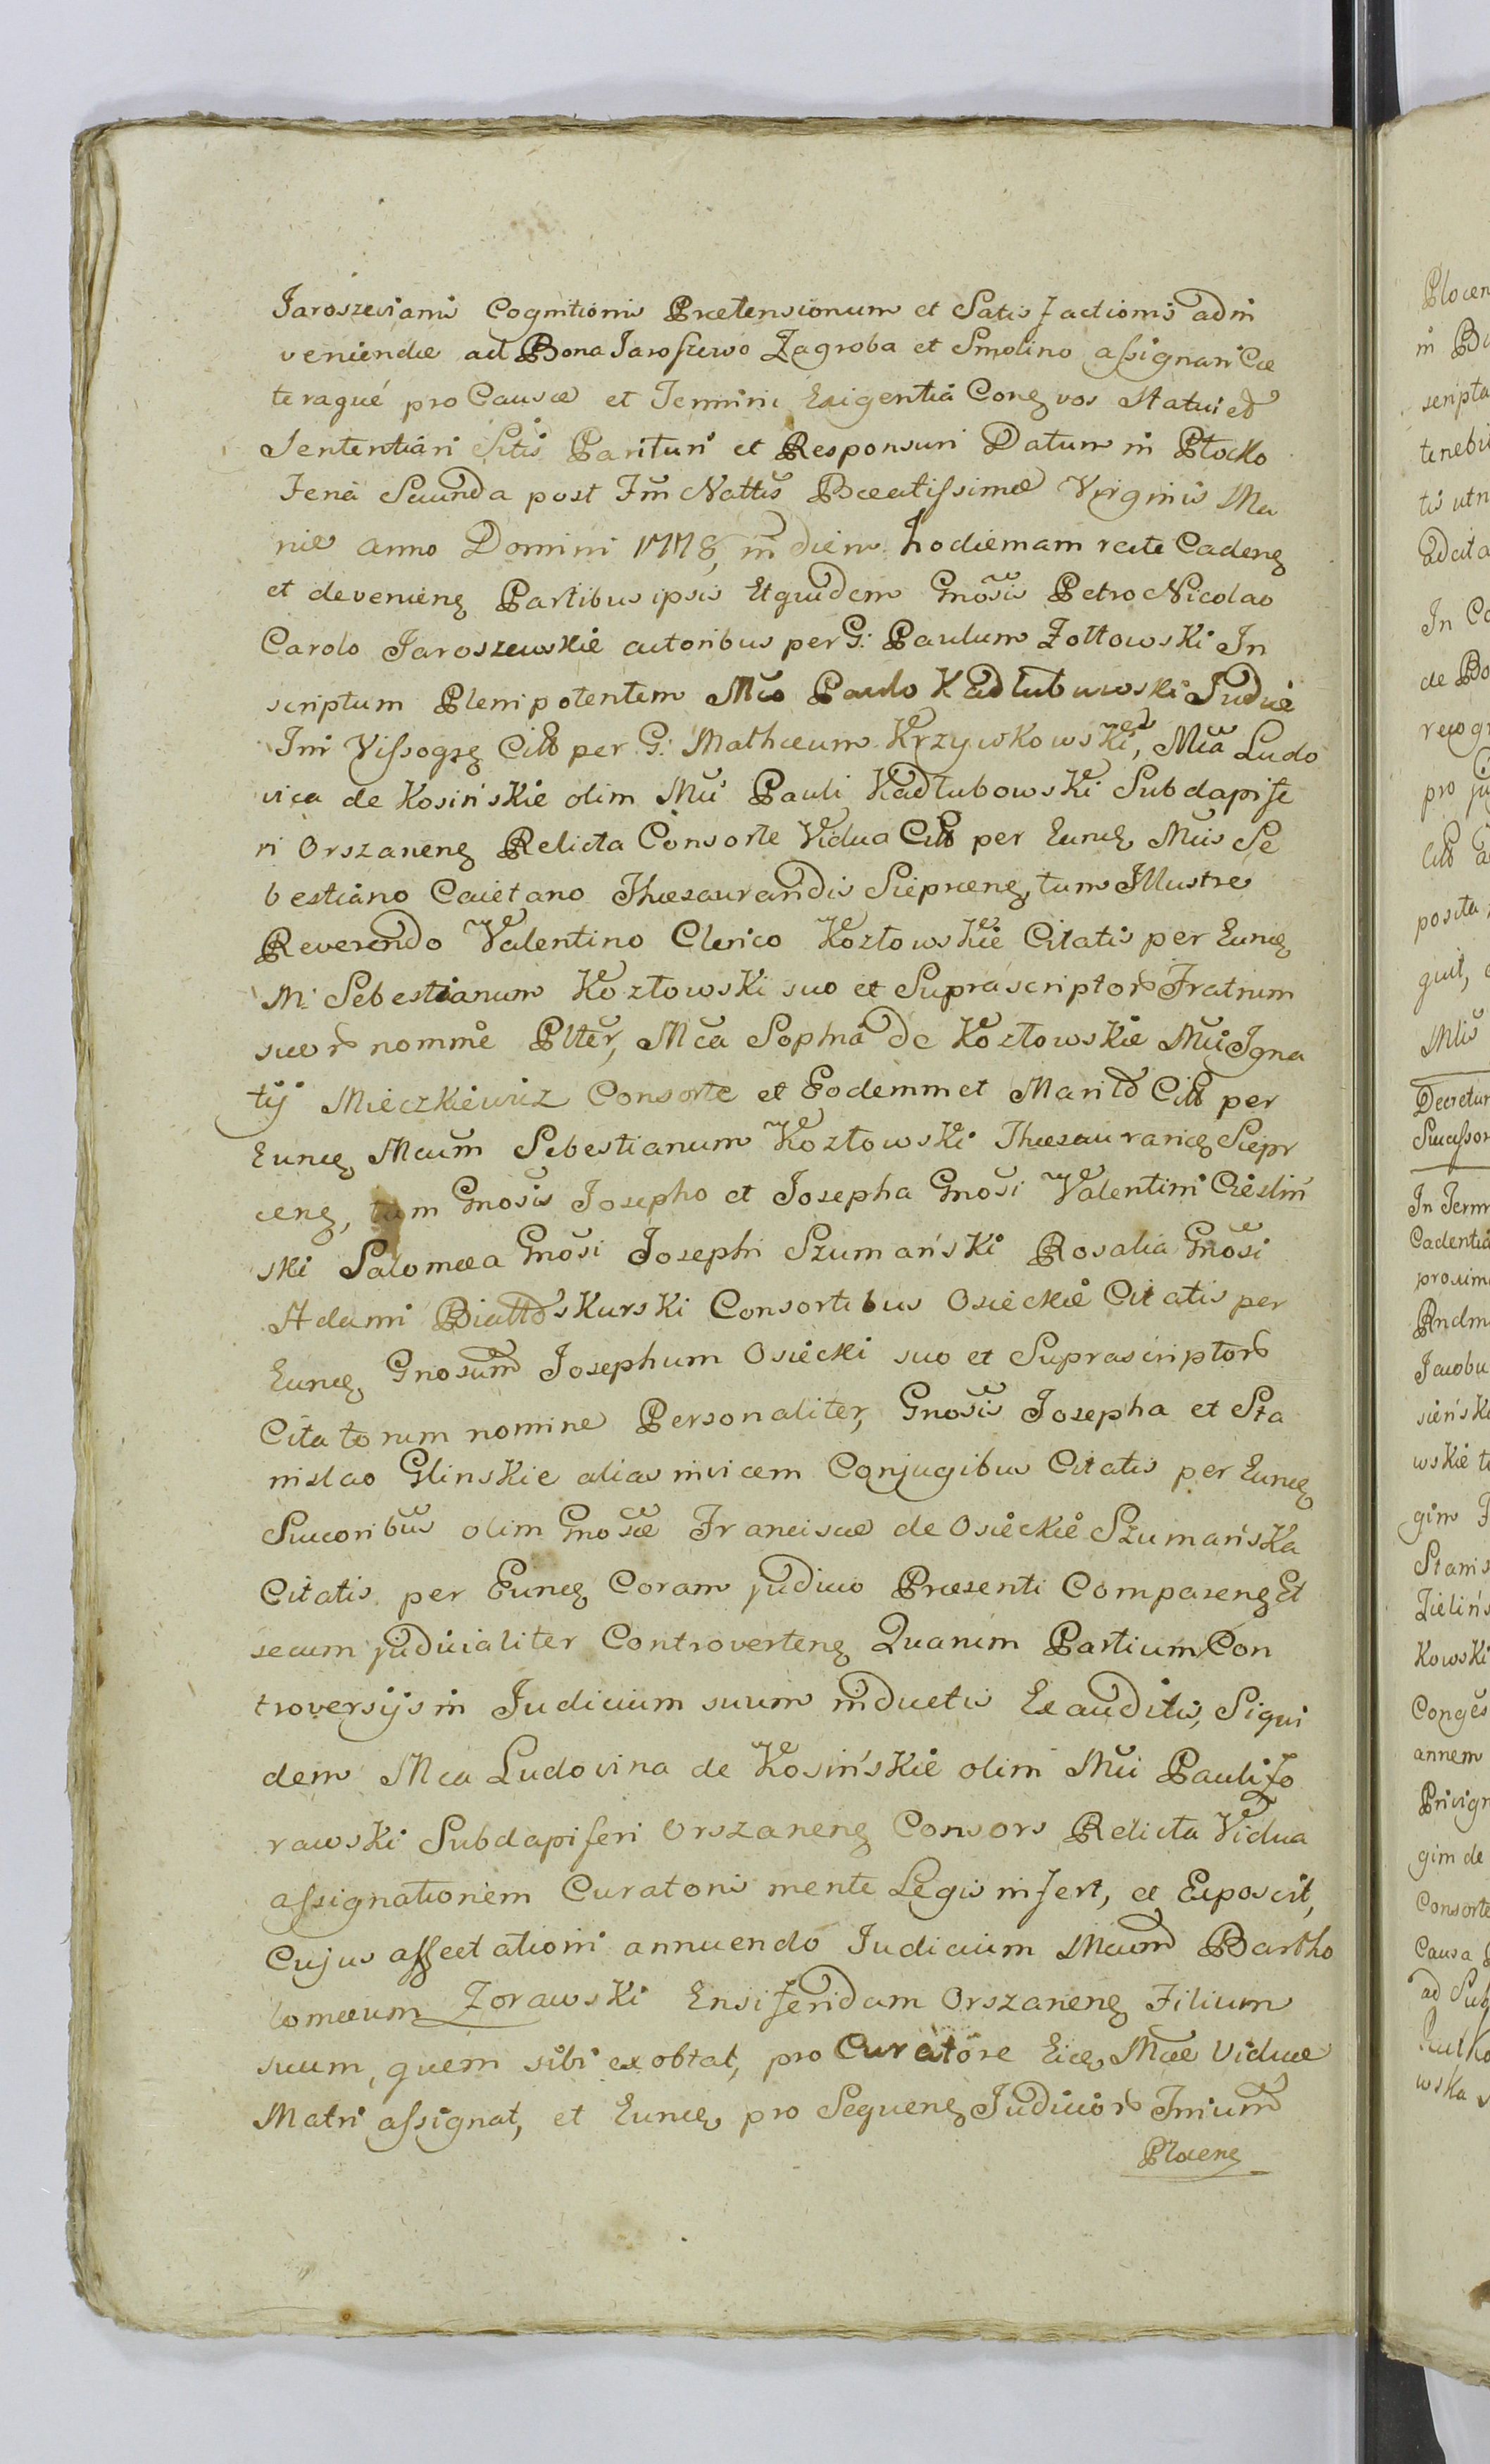 Jaroszeviani Cognitionis Prætensionum et Satisfactionis adin
veniendæ ad Bona Jaroszewo Zagroba et Smolino assignari Cæ
teraqué pro Causæ et Termini Exigentiá Coneg vos Statui et
Sententiari Sitis Parituri et Responsuri Datum in Płocko
Feriá Secunda post Fm Nattis Beatissimæ Virginis Ma
riæ Anno Domini 1778, in diem hodiernam rcite Cadeng
et devenieng Partibus ipsis Et quidem Gnosis Petro Nicolao
Carolo Jaroszewskie actoribus per G: Paulum Zołtowski In
scriptum Plenipotentem Mco Paulo Kadłubowski Judice
Tmi Vissogrg Citto per G: Mathæum Krzywkowski, Mca Ludo
vica de Kosińskie olim Mci Pauli Kadłubowski Subdapife
ri Orszaneng Relicta Consorte Vidua Citt per Eung Mcis Se
bestiano Caietano Thesaurandis Siepreng, tum Illustre
Reverendo Valentino Clerico Kozłowskie Citatis per Eung
M: Sebestianum Kozłowski suo et Suprascriptor Fratrum
suor nomine Plter, Mca Sophia de Kozłowskie Mci Igna
tij Mieczkiewicz Consorte et Eodemmet Marito Citt per
Eung Mcum Sebestianum Kozłowski Thesauranig Siepr
ceng, tum Gnosis Josepho et Josepha Gnosi Valentini Cieśliń
ski Salomea Gnosi Josephi Szumański Rosalia Gnosi
Adami Białłoskurski Consortibus Osieckie Citatis per
Eung Gnosum Josephum Osiecki suo et Suprascriptor
Citatorum nomine Personaliter, Gnosis Josepha et Sta
nislao Glinskie alias invicem Conjugibus Citatis per Eung
Succoribus olim Gnosæ Franciscæ de Osieckie Szumańska
Citatis per Eung Coram judicio Præsenti Compareng Et
secum judicialiter Controverteng Quarum Partium Con
troversijs in Judicium suum inductis Exauditis, Siqui
dem Mca Ludovina de Kosińskie olim Mci Pauli Zo
rawski Subdapiferi Orszaneng Consors Relicta Vidua
assignationem Curatoris mente Legis infert, et Exposcit,
Cujus affectationi annuendo Judicium Mcum Bartho
lomæum Zorawski Ensiferidam Orszaneng Filium
suum, quem sibi exobtat, pro Curatore Eieg Mcæ Viduæ
Matri assignat, et Eung pro Sequeng Judicior Tmium
Płoceng